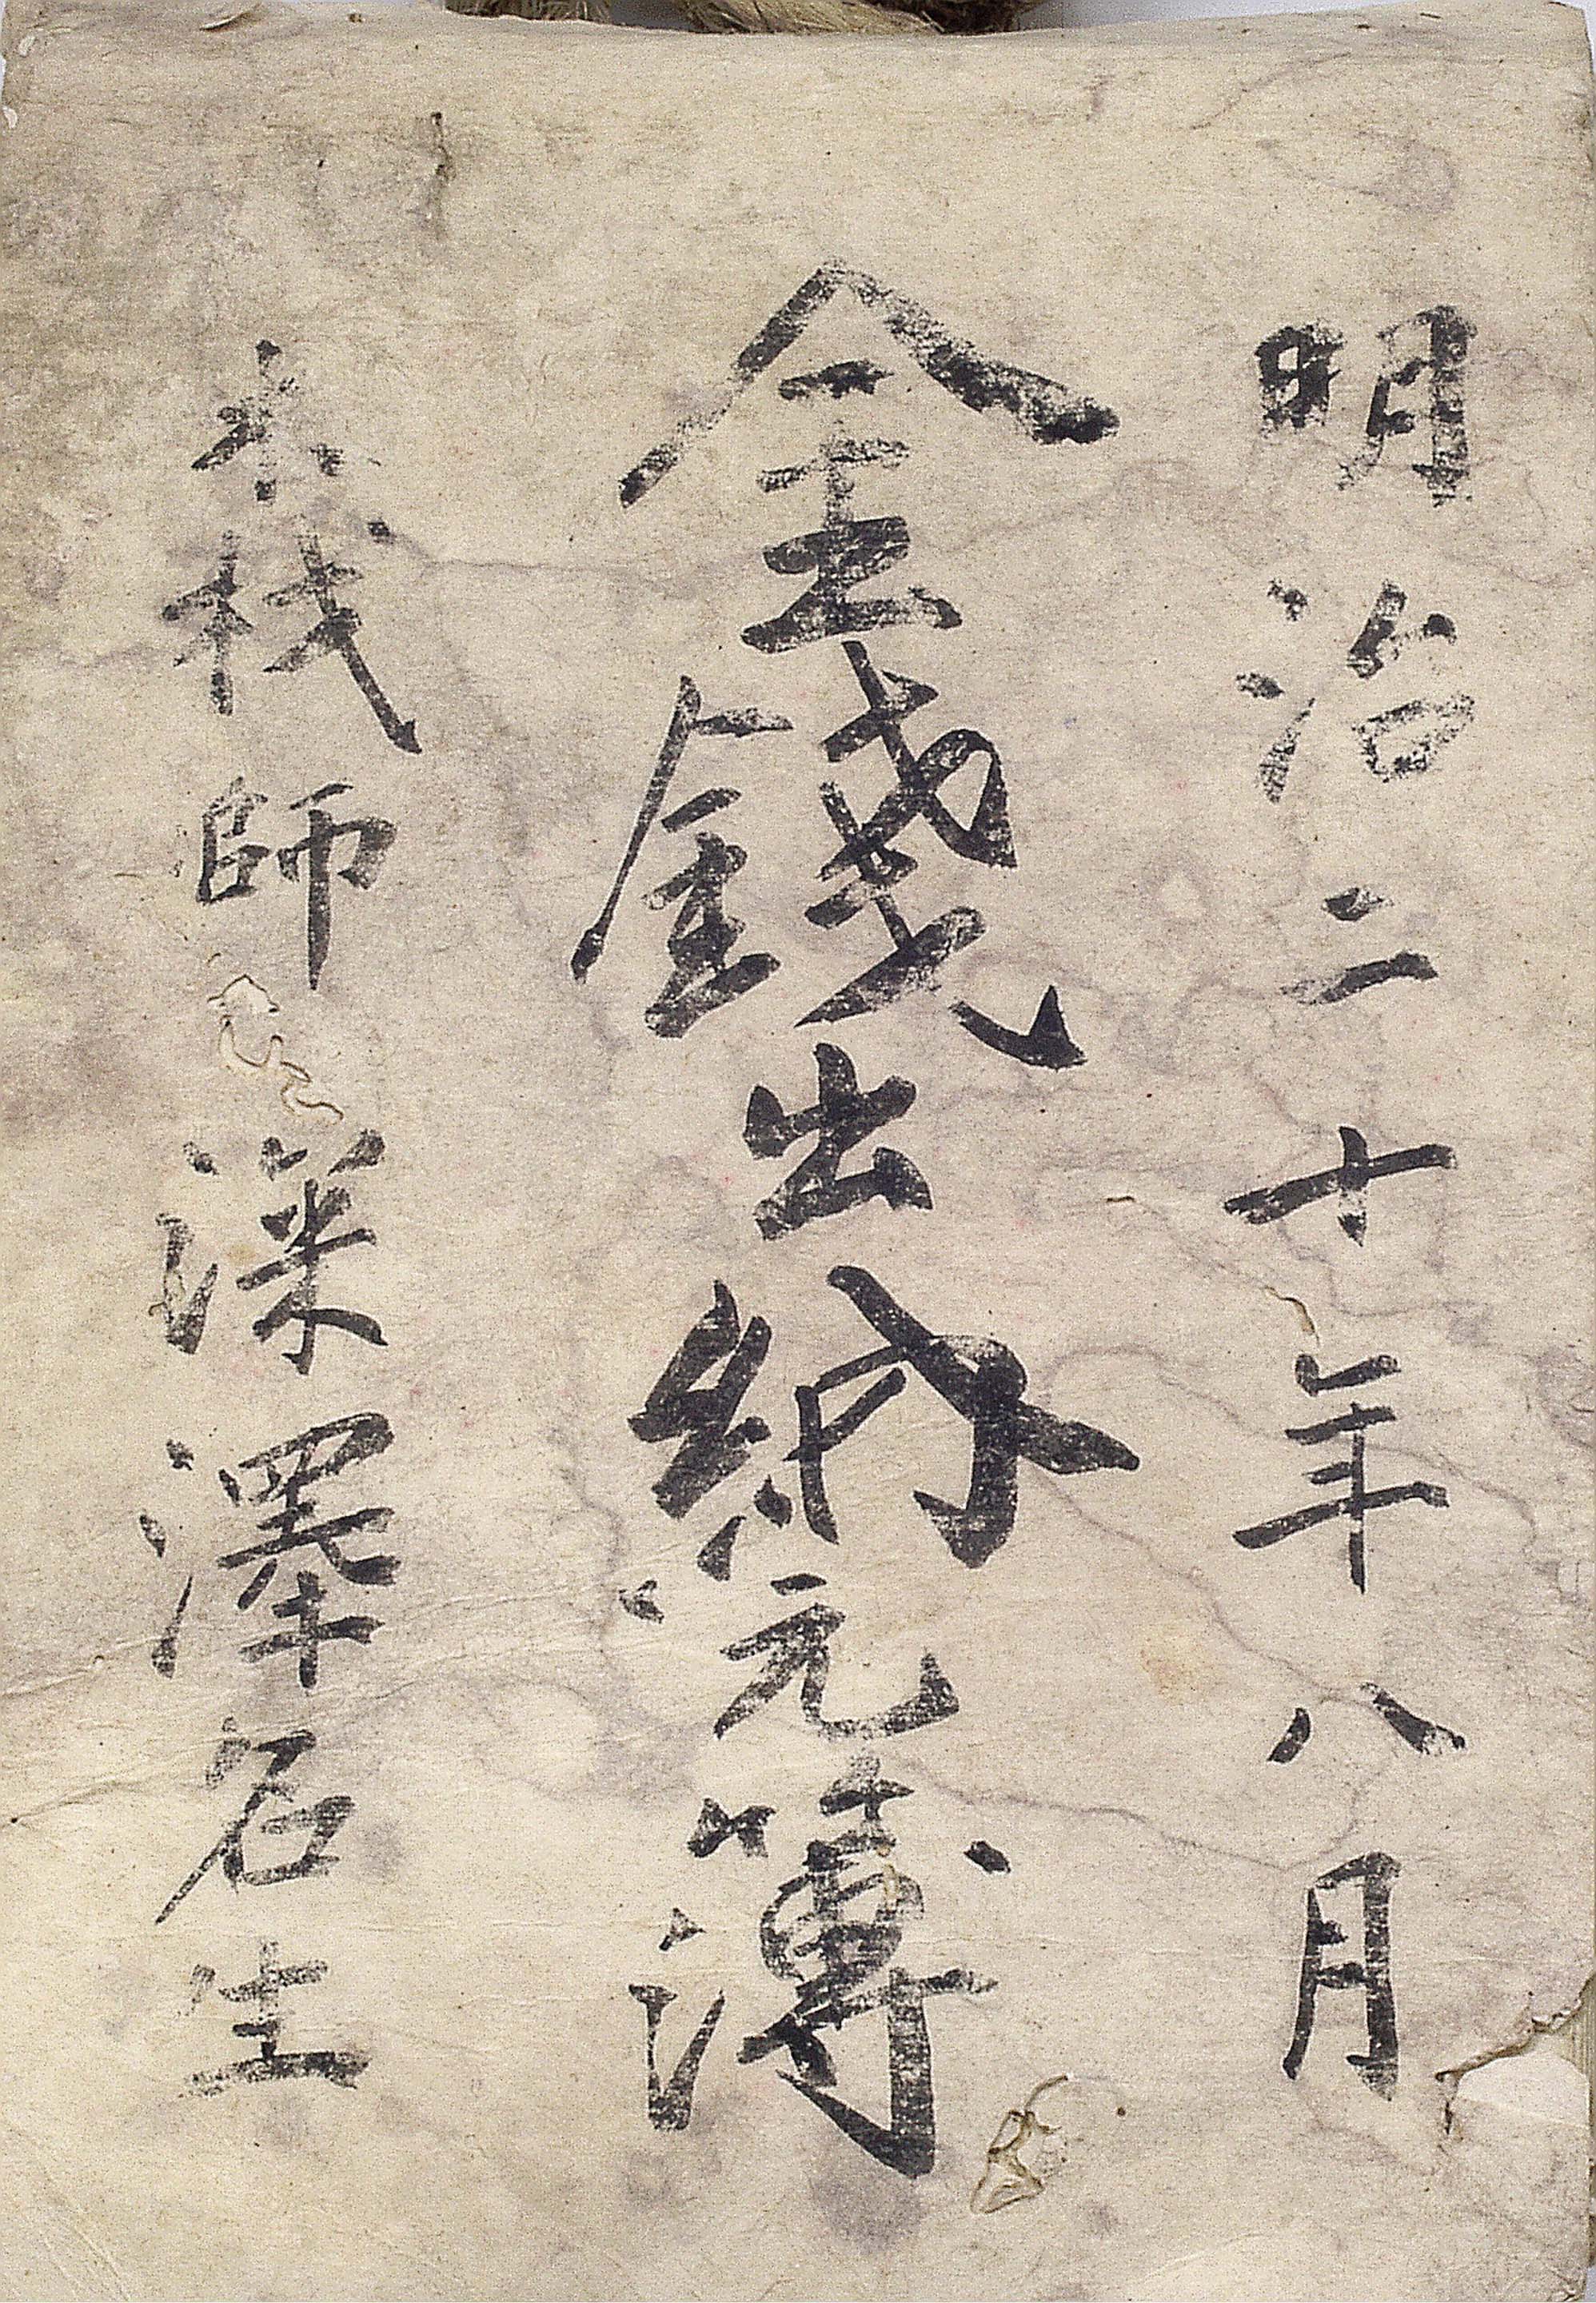 明治二十年八月
金錢出納元簿
師深澤名生